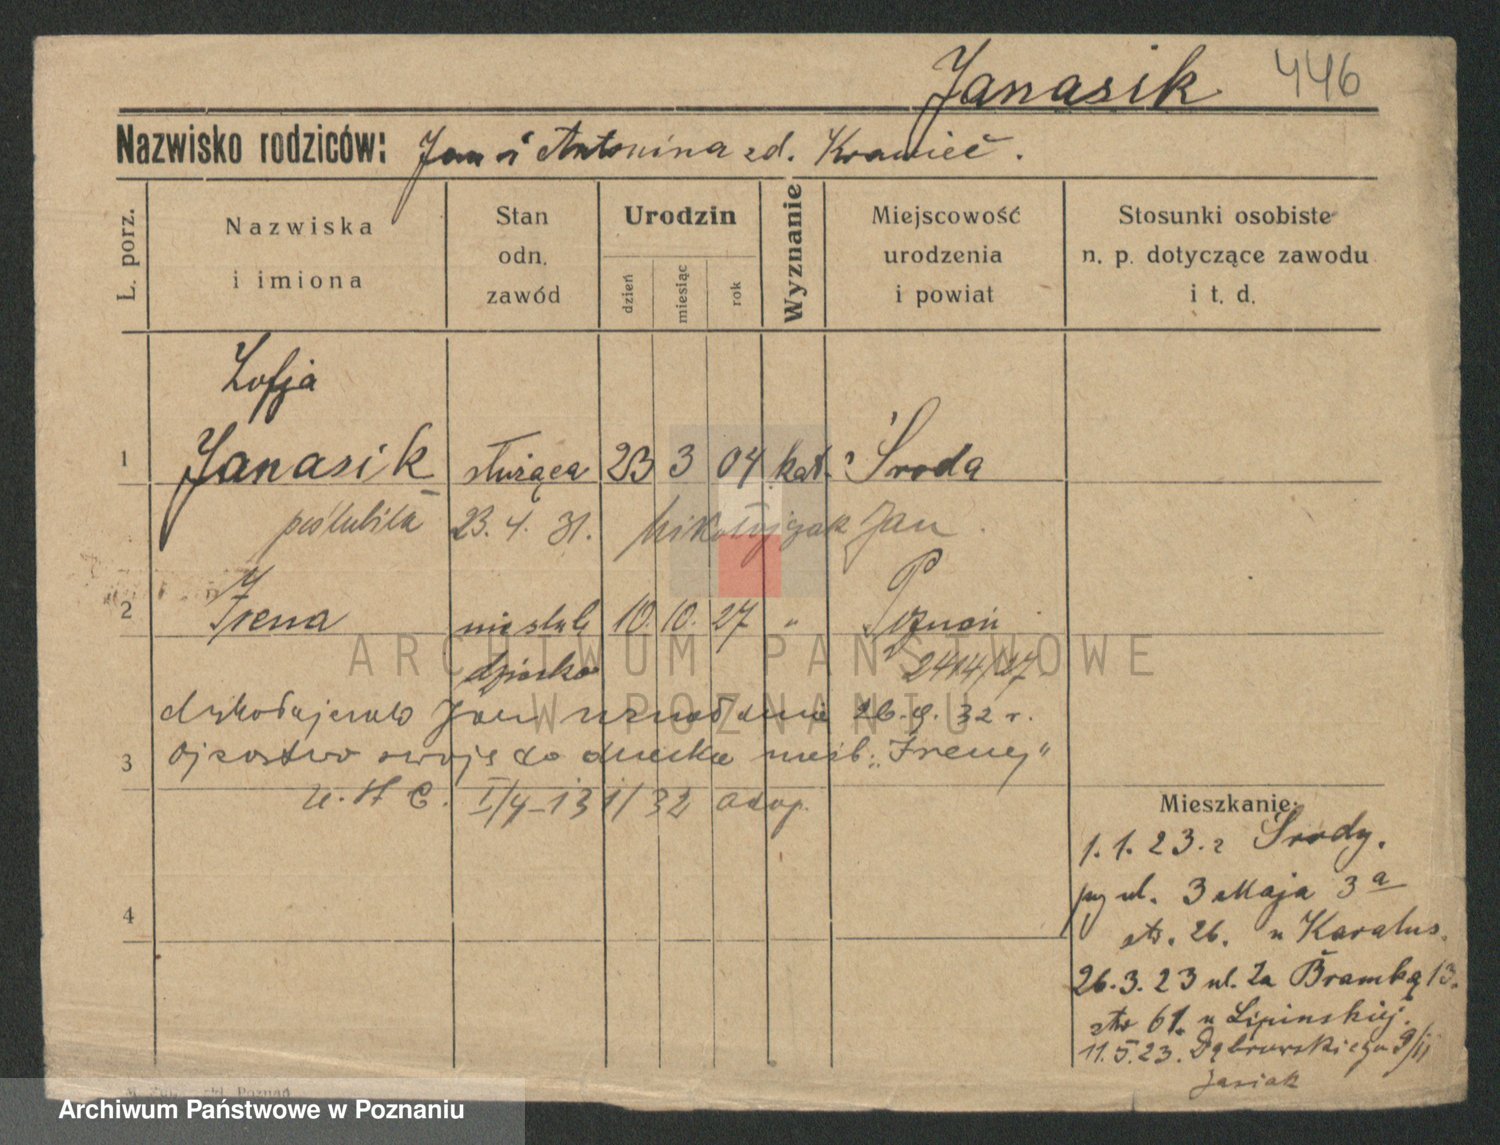 Janasik 446
Nazwisko rodziców: Jan i Antonina zd. Krawieć.
L. porz.
Nazwiska
i imiona
Stan
odn.
zawód
Urodzin
dzień
miesiąc
rok
Wyznanie
Miejscowość
urodzenia
i powiat
Stosunki osobiste
n. p. dotyczące zawodu
i t. d.
Zofja
1 Janasik służąca 23 3 04 kat. Środa
poślubiła 23. 4. 31. Mikołajczak Jan.
2 Irena nieślub. 10. 10. 27 " Poznań
dziecko 2414/27
Jan uznał dnia 26.9.32 r.
3 ojcostwo swoje do dziecka nieśl. „Ireny"
131/32 adop.
Mieszkanie:
1. 1. 23. z Środy.
przy ul. 3 Maja 3a
str. 26. u Karalus.
4
26. 3. 23 ul. Za Bramką 13.
str 61. u Lipinskiej.
11. 5. 23. Dąbrowskiego 9/II
Jasiak
ARCHIWUM PAŃSTWOWE
W POZNANIU
Archiwum Państwowe w Poznaniu